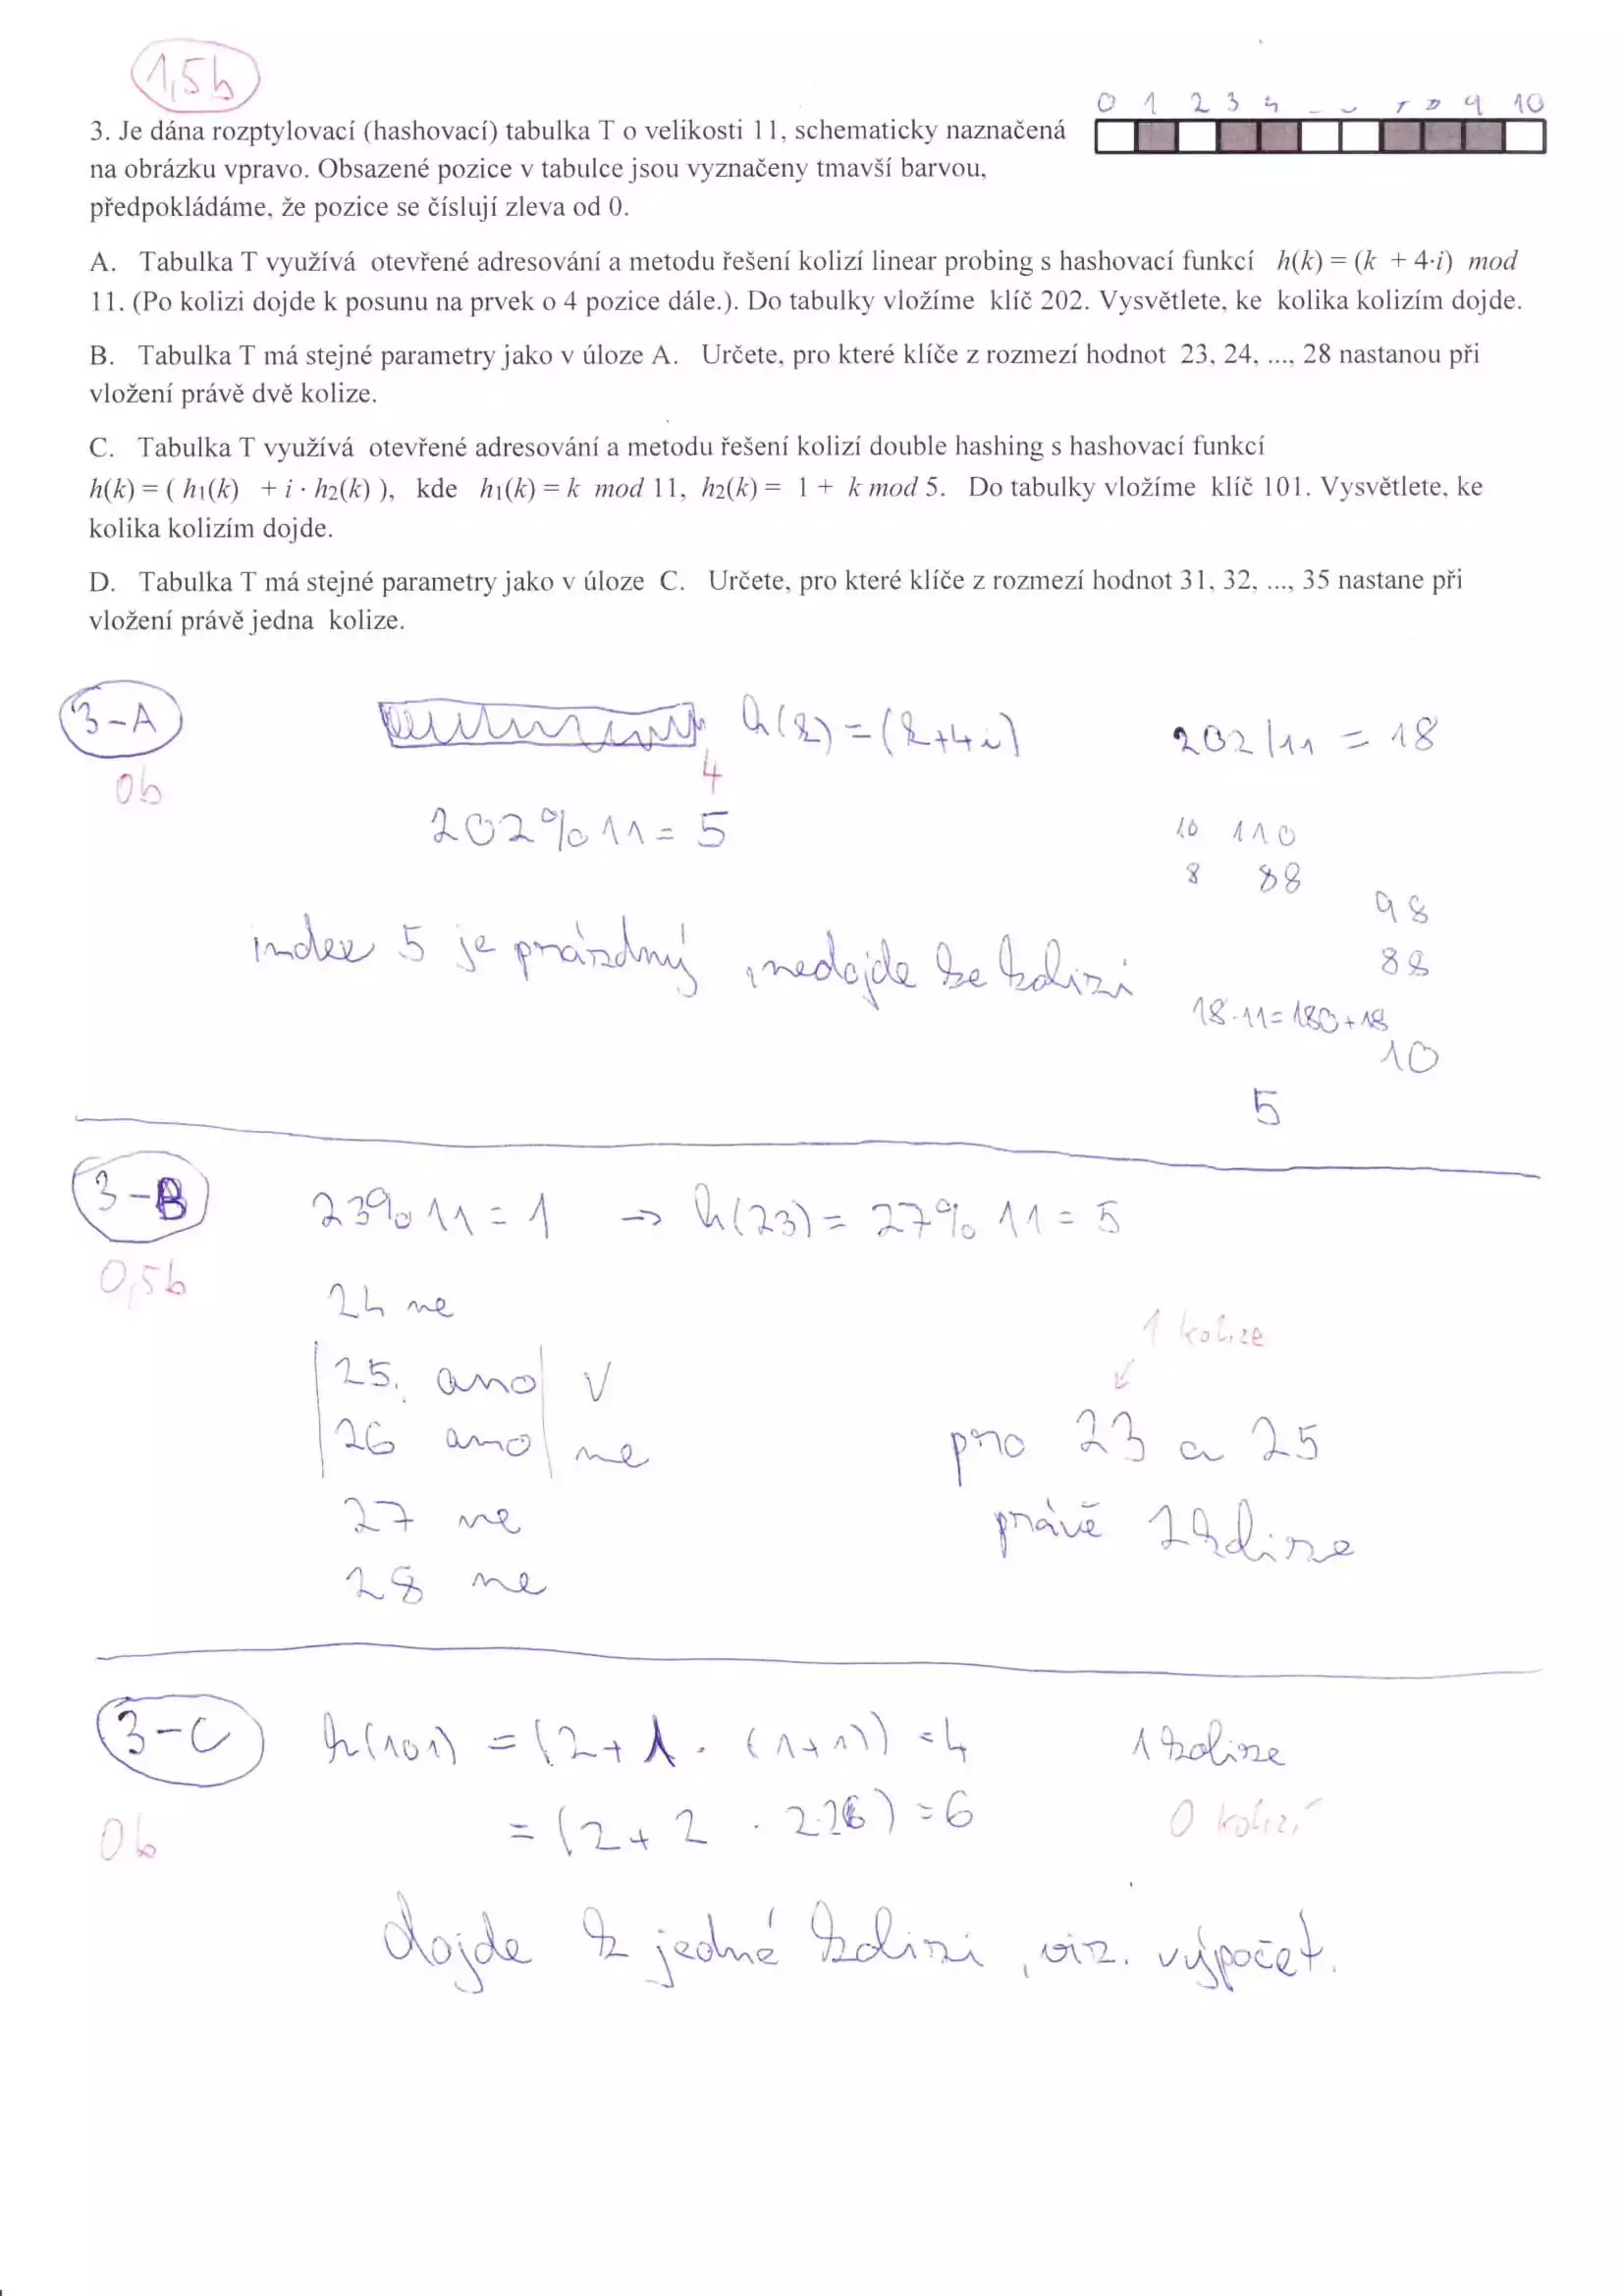 1,5b
0 1 2 3 4 9 10
3. Je dána rozptylovací (hashovací) tabulka T o velikosti 11, schematicky naznačená
na obrázku vpravo. Obsazené pozice v tabulce jsou vyznačeny tmavší barvou,
předpokládáme, že pozice se číslují zleva od 0.
A. Tabulka T využívá otevřené adresování a metodu řešení kolizí linear probing s hashovací funkcí h(k) = (k + 4·i) mod
11. (Po kolizi dojde k posunu na prvek o 4 pozice dále.). Do tabulky vložíme klíč 202. Vysvětlete, ke kolika kolizím dojde.
B. Tabulka T má stejné parametry jako v úloze A. Určete, pro které klíče z rozmezí hodnot 23, 24, ..., 28 nastanou při
vložení právě dvě kolize.
C. Tabulka T využívá otevřené adresování a metodu řešení kolizí double hashing s hashovací funkcí
h(k) = ( h1(k) + i · h2(k) ), kde h1(k) = k mod 11, h2(k) = 1 + k mod 5. Do tabulky vložíme klíč 101. Vysvětlete, ke
kolika kolizím dojde.
D. Tabulka T má stejné parametry jako v úloze C. Určete, pro které klíče z rozmezí hodnot 31, 32, ..., 35 nastane při
vložení právě jedna kolize.
3-A h(k) = (k+4i) 202/11 = 18
0b 4
202%11 = 5 10 110
8 88
98
index 5 je prázdný, nedojde ke kolizi 88
18·11=180+18
10
5
3-B 23%11 = 1 -> h(23) = 27%11 = 5
0,5b
24 ne
1 kolize
25. ano V
26 ano ne pro 23 a 25
27 ne právě 2 kolize
28 ne
3-C h(101) = (2+1·(1+1)) = 4 1 kolize
0b = (2+2· ) = 6 0 kolizí
dojde k jedné kolizi, viz. výpočet.